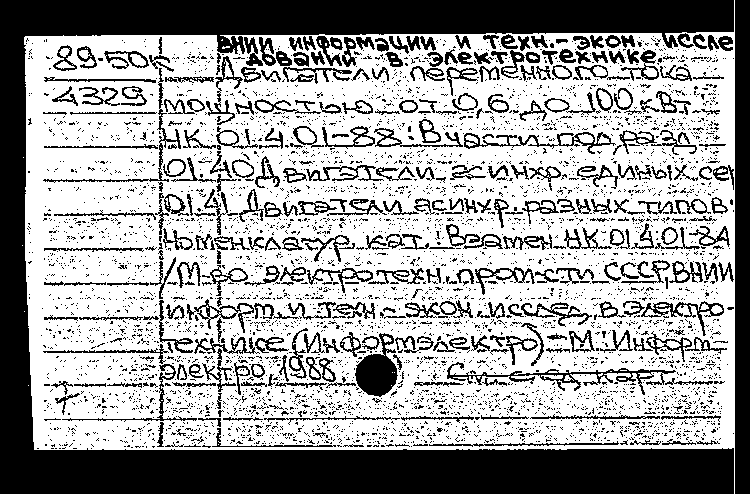 89-50к
4329
ВНИИ информации и техн.-экон. иссле
дований в электротехнике.
Двигатели переменного тока
мощностью от 0,6 до 100 кВт
НК 01.4.01-88: В части подразд
01.40 Двигатели асинхр. единых сер
01.41 Двигатели асинхр. разных типов:
Номенклатур. кат.: Взамен НК 01.4.01-84
/М-во электротехн. пром-сти СССР, ВНИИ
информ. и техн.-экон. исслед. в электро-
технике (Информэлектро) - М.: Информ-
электро, 1988.
См. след. карт.
7